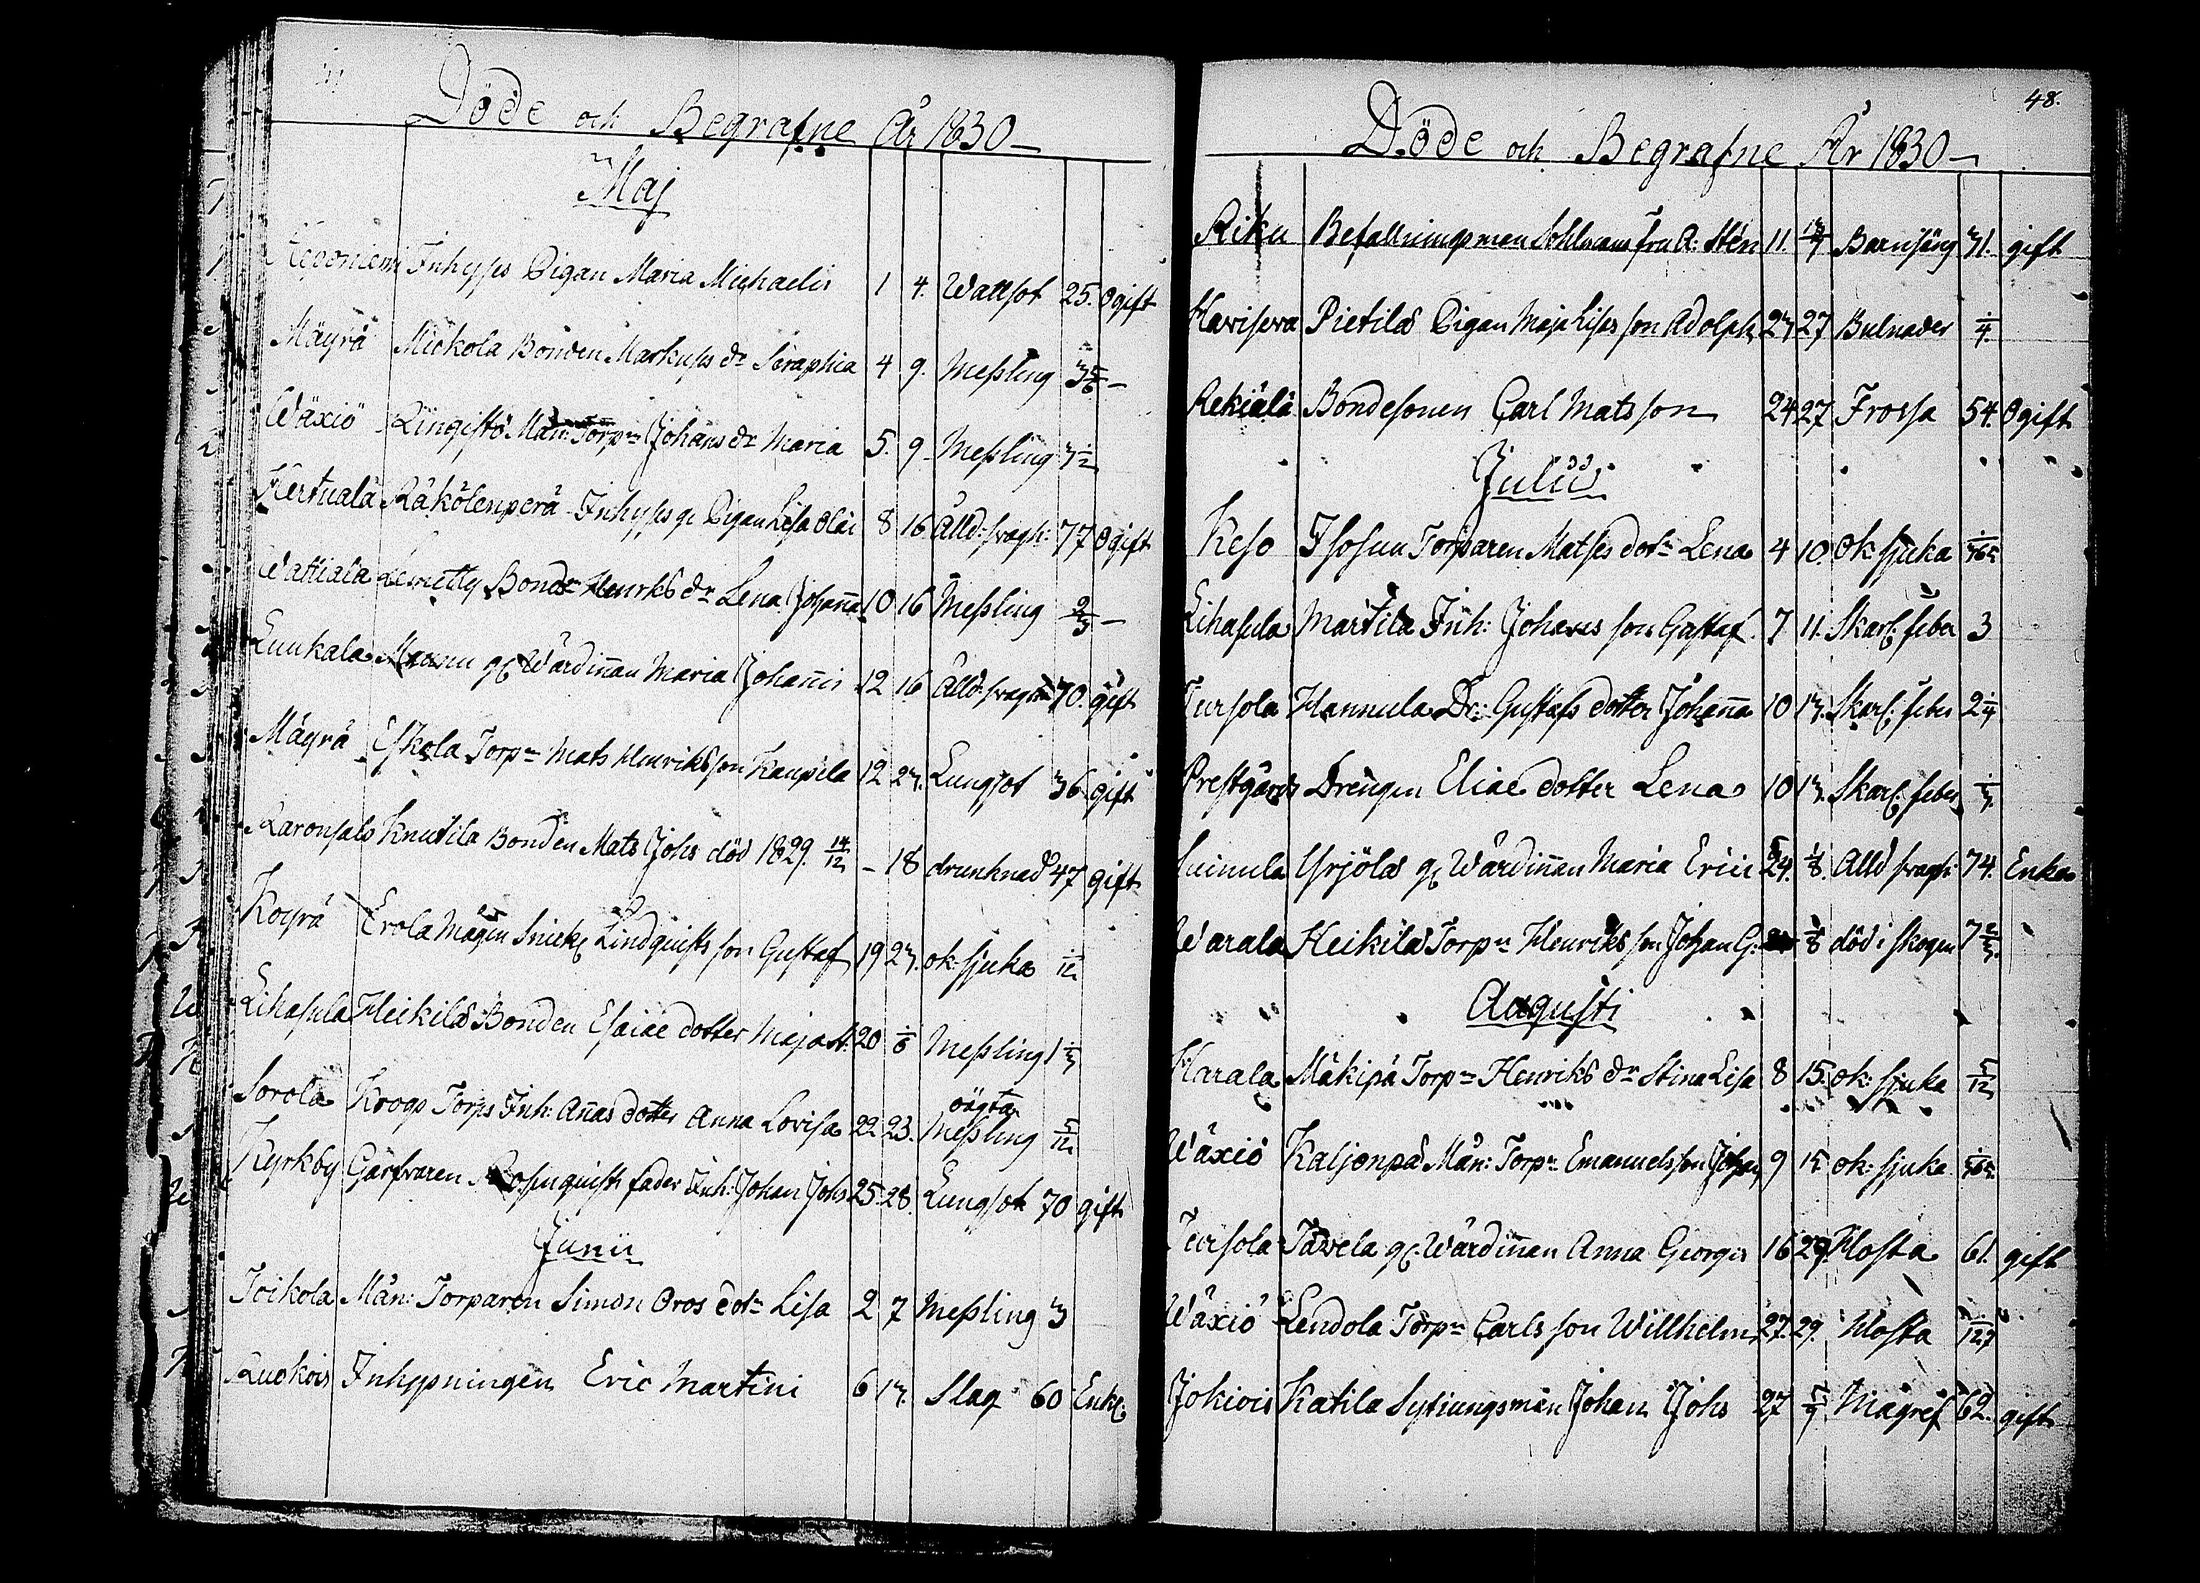 Döde och Begrafne År 1830
Maj
Inhyses Pigan Maria Michaelis 1 4. Wattsot 25. Ogift
Mäyrä Mickola Bonden Markuss dr Seraphia 4 9. Messling
Wäxiö Ringistö Mån: Torpn Johans dr Maria 5. 9 Messling
Hertuala Räkölenperä Inhyses gl Pigan Lisa Olai 8 16 Ålld: svagh: 77 Ogift
Wattiala Lemetty Bondn Henriks dr Lena Johanna 10 16 Messling 2/3
Luukala gl Wärdinnan Maria Johannis 12 16 Ålld: svaghet 70. gift
Mäyrä Eskola Torpn Mats Henriksson Kaupila 12 23. Lungsot 36 gift
Knutila Bonden Mats Johs död 1829. 14/12 – 18 drunknad 47 gift
Koyrä Erola Mågen Snick: Lindquists son Gustaf 19 23. ok: sjuka 1/12
Lihasula Heikilä Bonden Esaiae dotter Maja 20 Messling
Sorola Krogs Torps Inh: Anas dotter Anna Lovisa 22. 23. oägta Messling 5/12
Kyrkby Garfvaren Rosenquists fader Inh: Johan Johs 25 28. Lungsot 70 gift
Junii
Toikola Mån: Torparen Simon Oros dotr Lisa 2 7 Messling 3
Ruokois Inhysningen Eric Martini 6 13. Slag 60 Enkl:
48.
Döde och Begrafne År 1830
Riku Befallningsman Sohlmans fru A: Stén 11. Barnsäng 31. gift
Havisevа Pietilä Pigan Maja Lisas son Adolph 23 27 Bulnader 1/4
Rekiälä Bondesonen Carl Matsson 24 27 Frossa 54. Ogift
Julii
Keso Isosuu Torparen Matses dotr Lena 4 10. Ok sjuka
Lihasula Martila Inh: Johans son Gustaf. 7 11. Skarl: feber 3
Tursola Hannula Dr: Gustafs dotter Johanna 10 13. Skarl: feber 2 1/4
Prestgårds Drengen Eliae dotter Lena 10 13. Skarl: feber
Suinula Yrjölä gl Wärdinnan Maria Erici 24. 1/8. Ålld svagh: 74. Enka
Warala Heikilä Torpn Henriks son Johan G: 1/8 död i skogen 7 2/3
Augusti
Harala Mäkipä Torpn Henriks dr Stina Lisa 8 15. ok: sjuka 5/12
Wäxiö Kaljonpä Mån: Torpn Emanuels son Johan 9 15 ok: sjuka
Tursola Tawela gl Wärdinnan Anna Georgii 16 29. Hosta 61. gift
Wäxiö Lendola Torpn Carls son Willhelm 27. 29. Hosta
Jokiois Katila Sytiungsman Johan Johs 27 Magref 62. gift